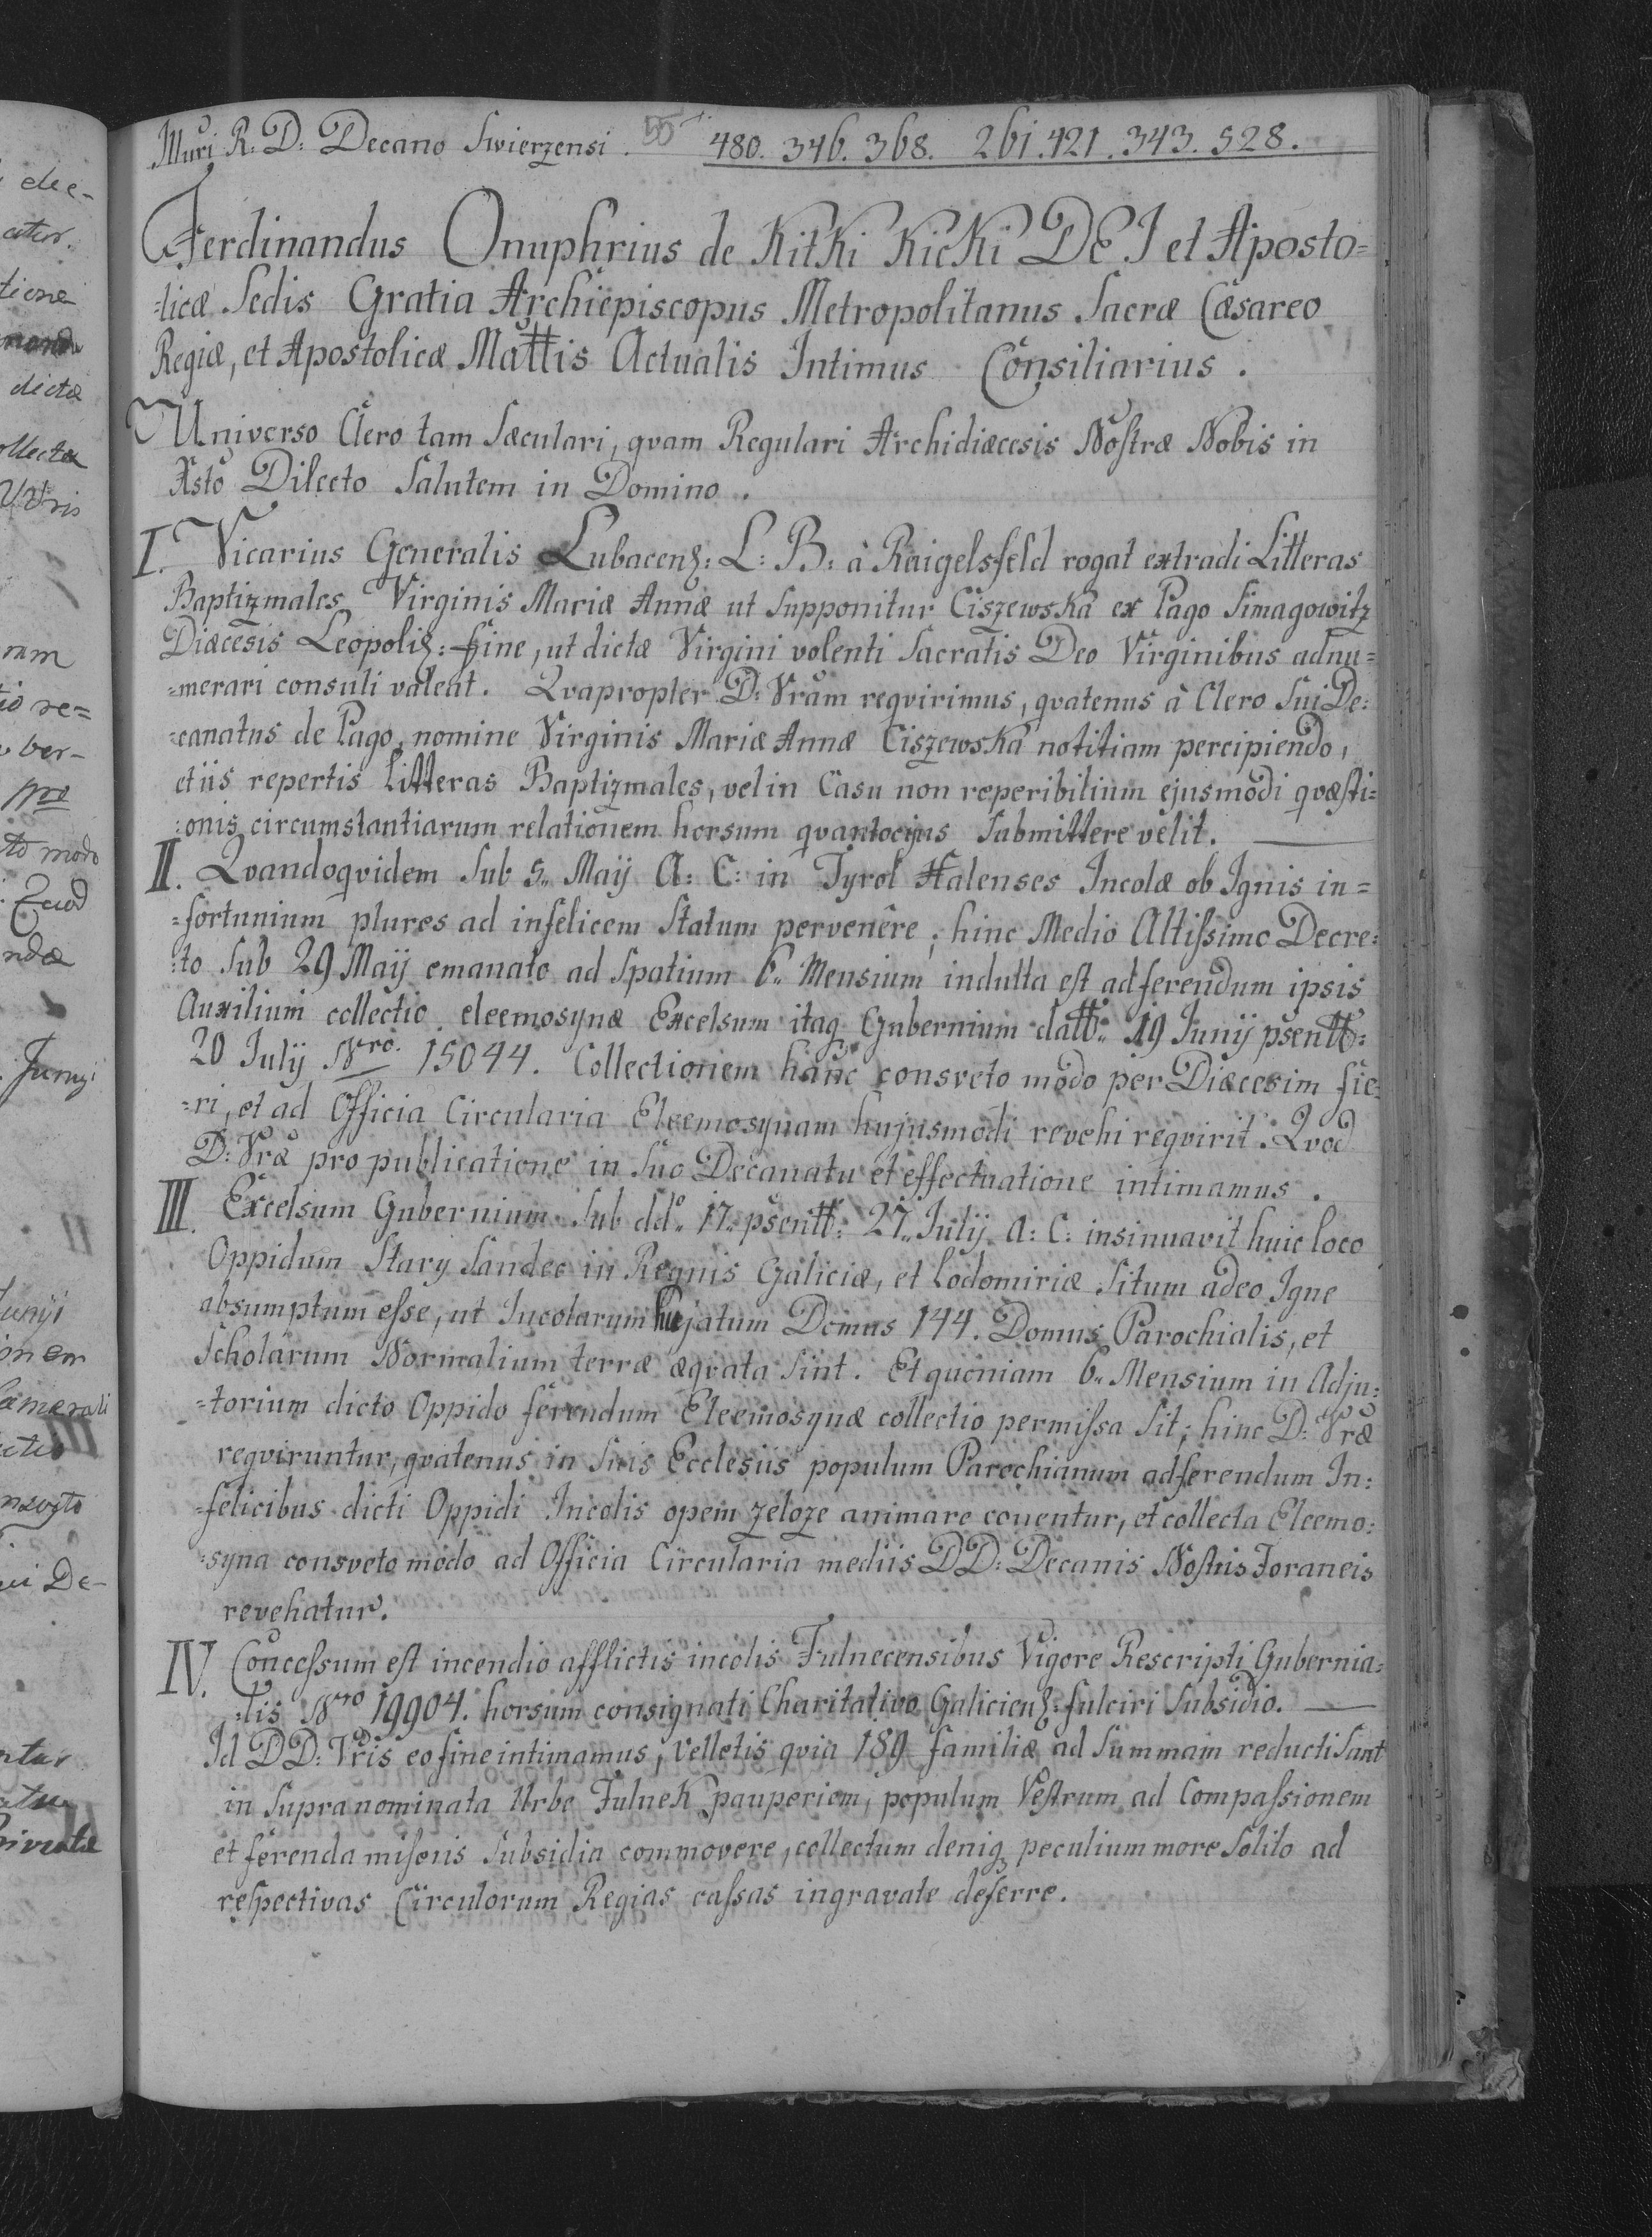 Illuri R: D: Decano Swierzensi. 55 480. 346. 368. 261. 421. 343. 528.
Ferdinandus Onuphrius de Kitki Kicki DEI et Aposto=
=licæ Sedis Gratia Archiepiscopus Metropolitanus Sacræ Cæsareo
Regiæ, et Apostolicæ Mattis Actualis Intimus Consiliarius.
Universo Clero tam Sæculari, qvam Regulari Archidiæcesis Nostræ Nobis in
Xsto Dilecto Salutem in Domino.
I. Vicarius Generalis Lubacenz: L: B: à Raigelsfeld rogat extradi Litteras
Baptizmales Virginis Mariæ Annæ ut Supponitur Ciszewska ex Pago Simagowitz
Diæcesis Leopoliz: fine, ut dictæ Virgini volenti Sacratis Deo Virginibus adnu=
=merari consuli valeat. Qvapropter D: Vram reqvirimus, qvatenus à Clero Sui De:
=canatus de Pago, nomine Virginis Mariæ Annæ Ciszewska notitiam percipiendo,
et iis repertis Litteras Baptizmales, vel in Casu non reperibilium ejusmodi qvæsti=
:onis circumstantiarum relationem horsum qvantocijus Submittere velit.
II. Qvandoqvidem Sub 5„ Maij A: C: in Tyrol Halenses Incolæ ob Ignis in=
=fortunium plures ad infelicem Statum pervenêre; hinc Medio Altissimo Decre=
:to Sub 29 Maij emanato ad Spatium 6„ Mensium indulta est adferendum ipsis
Auxilium collectio eleemosynæ Excelsum itaq Gubernium datt„ 19 Junij psentt:
20 Julij Nro. 15044. Collectionem hanc consveto modo per Diæcesim fie=
=ri, et ad Officia Circularia Eleemosynam hujusmodi revehi reqvirit. Qvod
D: Vræ pro publicatione in Suo Decanatu et effectuatione intimamus.
III. Excelsum Gubernium Sub ddo„ 17„ psentt: 27„ Julij A: C: insinuavit huic loco
Oppidum Stary Sandec in Regnis Galiciæ, et Lodomiriæ Situm adeo Igne
absumptum esse, ut Incolarum hujatum Domus 144. Domus Parochialis, et
Scholarum Normalium terræ æqvata Sint. Et quoniam 6„ Mensium in Adju=
=torium dicto Oppido ferendum Eleemosynæ collectio permissa Sit; hinc D: Vræ
reqviruntur, qvatenus in Suis Ecclesiis populum Parochianum adferendum In:
=felicibus dicti Oppidi Incolis opem zeloze animare conentur, et collecta Eleemo:
:syna consveto modo ad Officia Circularia mediis DD: Decanis Nostris Foraneis
revehatur.
IV. Concessum est incendio afflictis incolis Fulnecensibus Vigore Rescripti Gubernia=
:lis Nro 19904. horsum consignati Charitativo Galicienz: fulciri Subsidio.
Id DD: Vris eo fine intimamus, velletis qvia 189 familiæ ad Summam reducti Sunt
in Supranominata Urbe Fulnek pauperiem, populum Vestrum ad Compassionem
et ferenda miseris Subsidia commovere, collectum deniq peculium more Solito ad
respectivas Circulorum Regias cassas ingravate deferre.